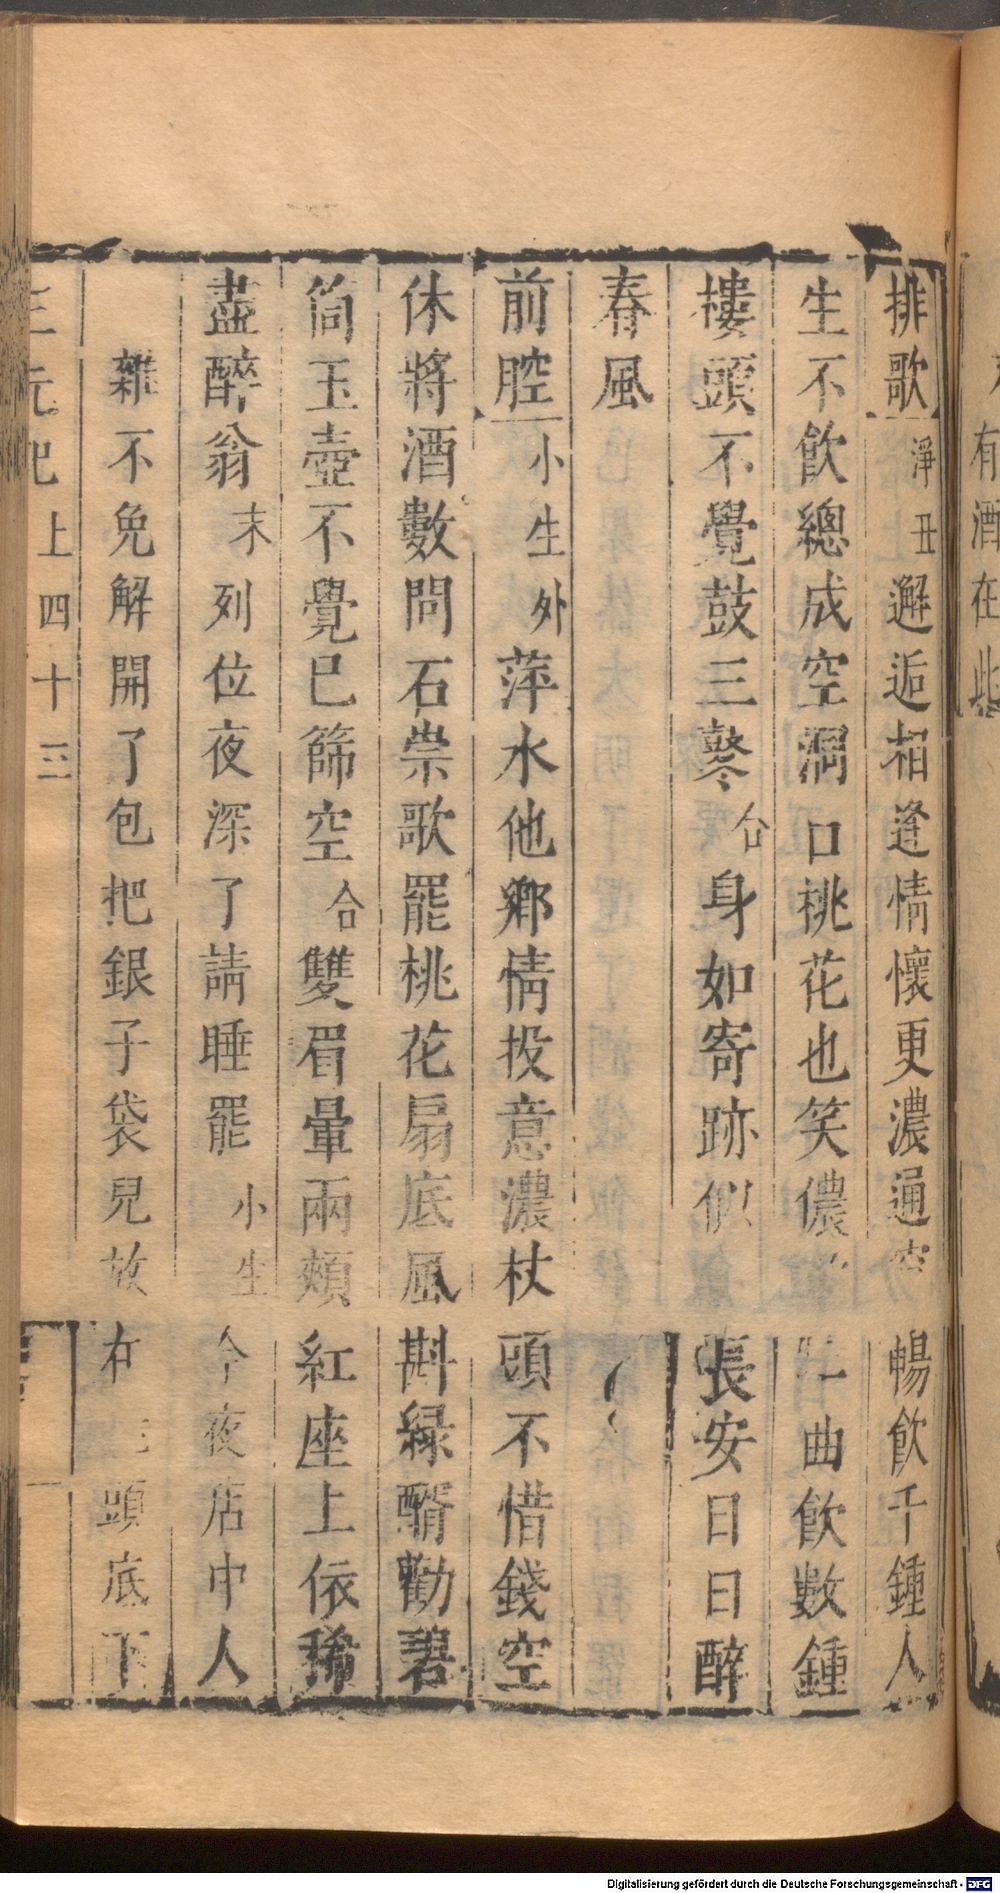 有酒在此
排歌淨丑邂逅相逢情懷更濃通宵暢飲千鍾人
生不飲總成空洞口桃花也笑儂一曲飲數鍾
樓頭不覺鼓三鼕合身如寄跡似長安日日醉
春風
前腔小生外萍水他鄉情投意濃杖頭不惜錢空
休將酒數問石崇歌罷桃花扇底風斟綠醑勸碧
筒玉壺不覺已篩空合雙眉暈兩頰紅座上依稀
盡醉翁末列位夜深了請睡罷小生今夜店中人
雜不免解開了包把銀子袋兒放在頭底下
三元記上四十三
Digitalisierung gefördert durch die Deutsche Forschungsgemeinschaft - DFG